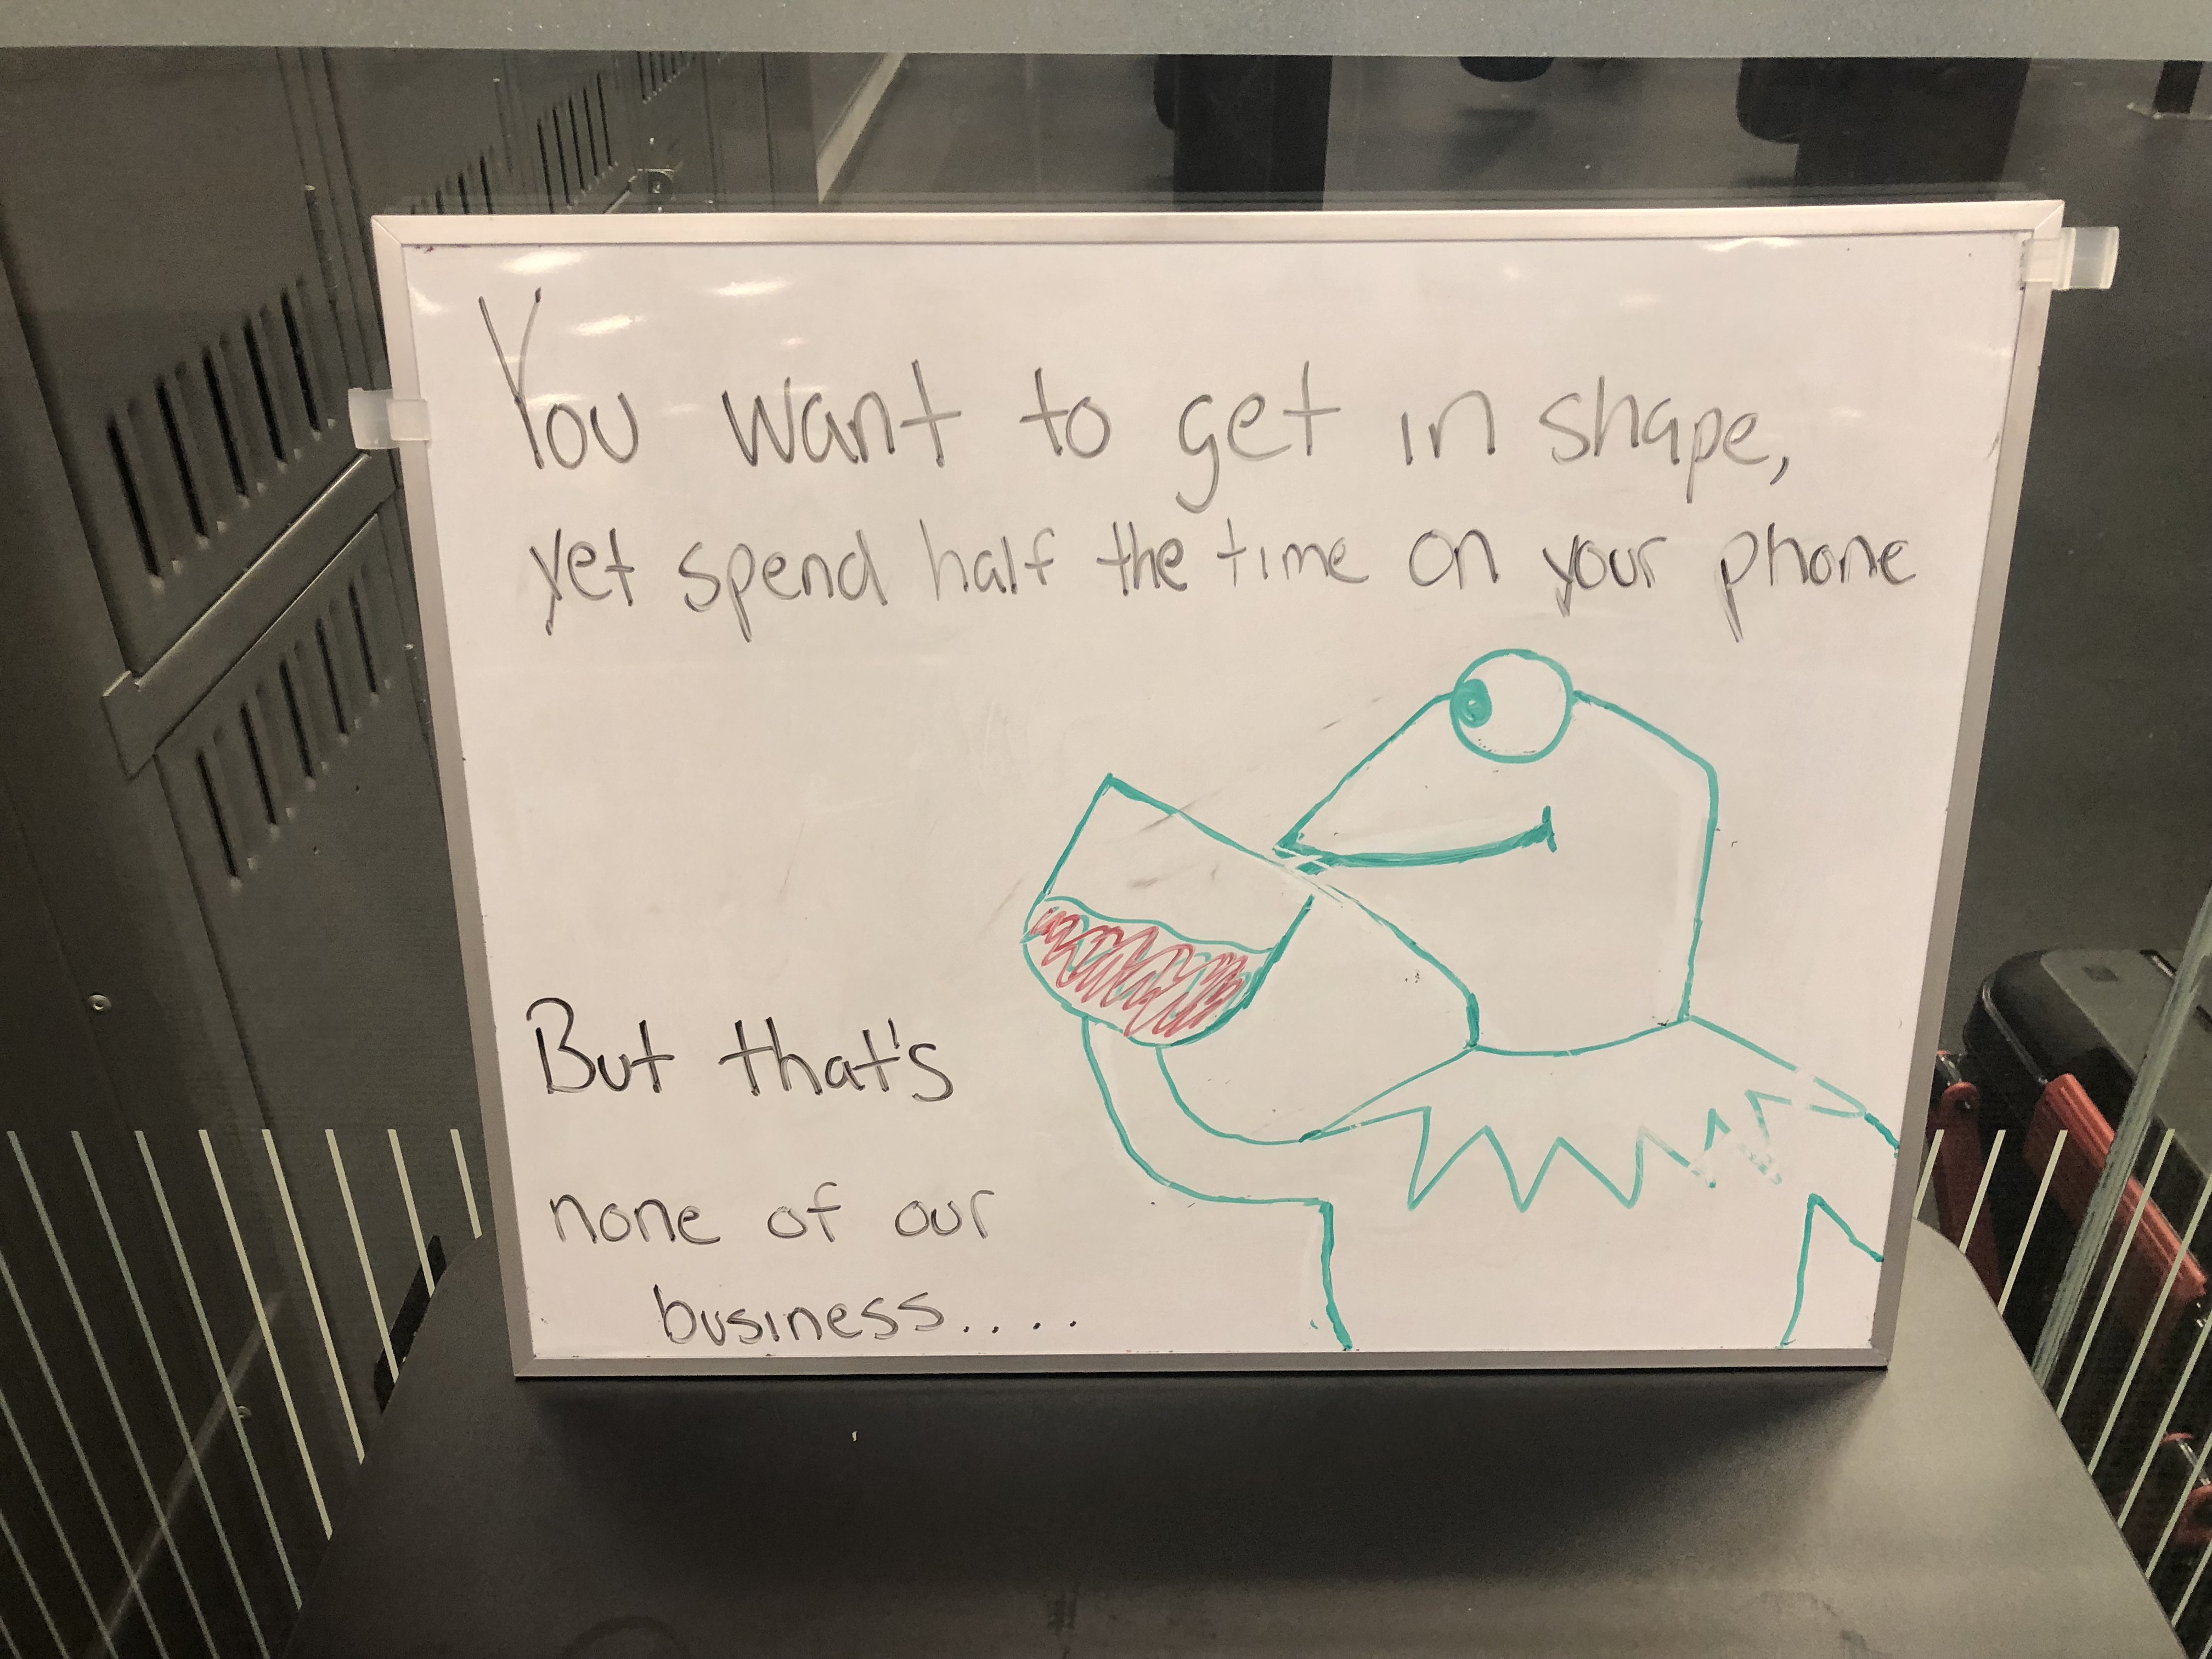 You want to get in shape,
yet spend half the time on your phone
But that's
none of our
business....